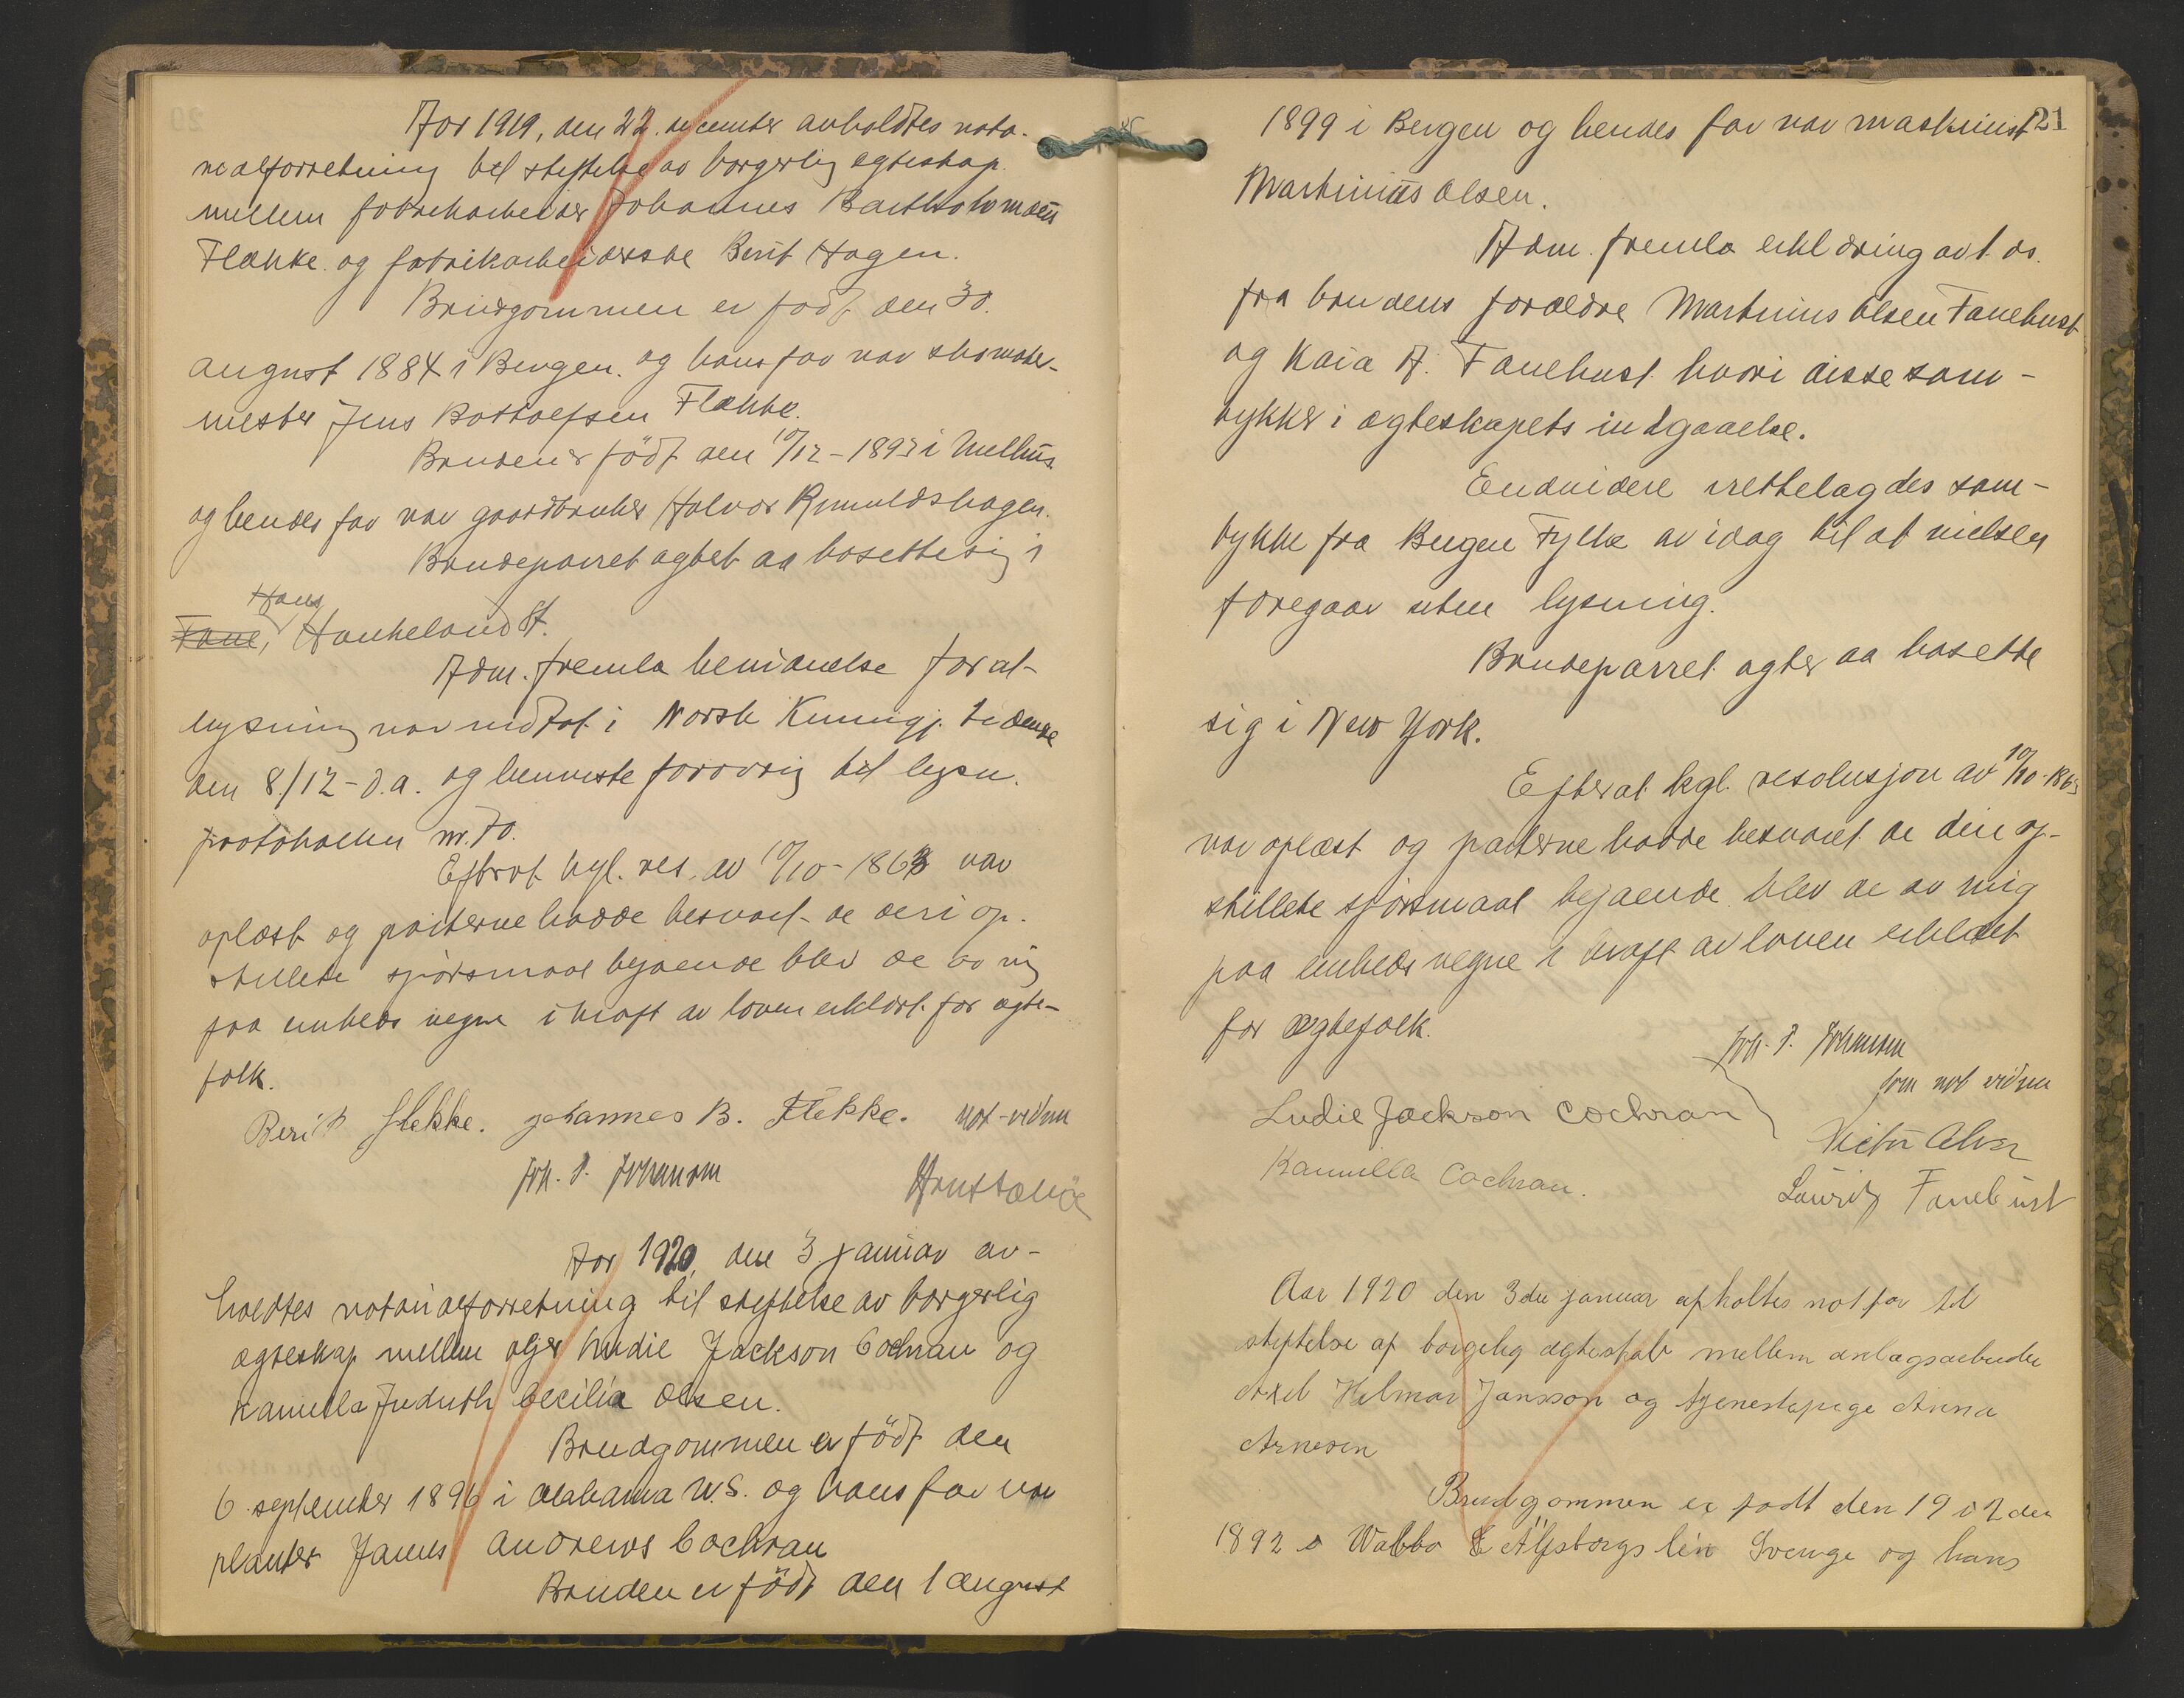 Aar 1919, den 22. december avholdtes nota-
rialforretning til stiftelse av borgerlig egteskap
mellem fabrikarbeider Johannes Bartholomæus
Flække og fabrikarbeiderske Berit Hagen.
Brudgommen er født den 30.
august 1884 i Bergen og hans far var skomaker-
mester Jens Flække.
Bruden er född den 10/12-1893 i Melhus
og hendes far var gaardbruker Halvor Rimuldshagen.
Brudeparret agter aa bosette sig i
Hans
Fane, Haukeland St.
Adm. fremla bevidnelse for at
lysning var indtat i Norsk Kunngj. tidende
den 8/12-d.a. og henviste forøvrig til lysn.
protokollen nr. 70.
Efterat kgl. res. av 10/10-1863 var
oplæst og parterne hadde besvart de deri op-
stillete spörsmaal bejaende blev de av mig
paa embeds vegne i kraft av loven erklært for egte-
folk.
Berit Flekke. Johannes B. Flekke. not-vidne
Joh. P. Johansen
Aar 1920, den 3 januar av-
holdtes notarialforretning til stiftelse av borgerlig
egteskap mellem Ludie Jackson Cochran og
Kamilla Judith Cecilia Olsen.
Brudgommen er född den
6. september 1896 i Alabama U.S. og hans far var
planter James Andrews Cochran
Bruden er född den 1 august
21
1899 i Bergen og hendes far var maskinist
Martinius Olsen.
Adm. fremla erklæring av 1. ds.
fra brudens forældre Martinius Olsen Fanebust
og Kaia A. Fanebust hvori disse sam-
tykker i ægteskapets indgaaelse.
Endvidere rettelagdes sam-
tykke fra Bergen Fylke av idag til at vielsen
foregaar uten lysning.
Brudeparret agter aa bosette
sig i New York.
Efterat kgl. resolusjon av 10/10-1863
var oplæst og parterne hadde besvaret de deri op-
stillete spörsmaal bejaende blev de av mig
paa embeds vegne i kraft av loven erklært
for ægtefolk.
Joh. P. Johansen
som not vidne
Ludie Jackson Cochran
Victor Alver
Kamilla Cochran.
Lauritz Fanebust
Aar 1920 den 3die januar afholtes not for til
stiftelse af borgelig ægteskab mellem anlægsarbeider
Axel Hilmar Jansson og tjenestepige Anna
Arnesen
Brudgommen er født den 19
1892 i Wabbo Elfsborgs len Sverige og hans